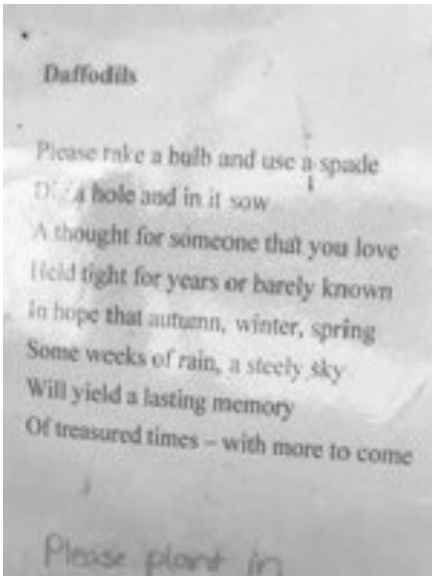 Daffodils
Please take a bulb and use a spade
Dig a hole and in it sow
A thought for someone that you love
Held tight for years or barely known
In hope that autumn, winter, spring
Some weeks of rain, a steely sky
Will yield a lasting memory
Of treasured times – with more to come
Please plant in